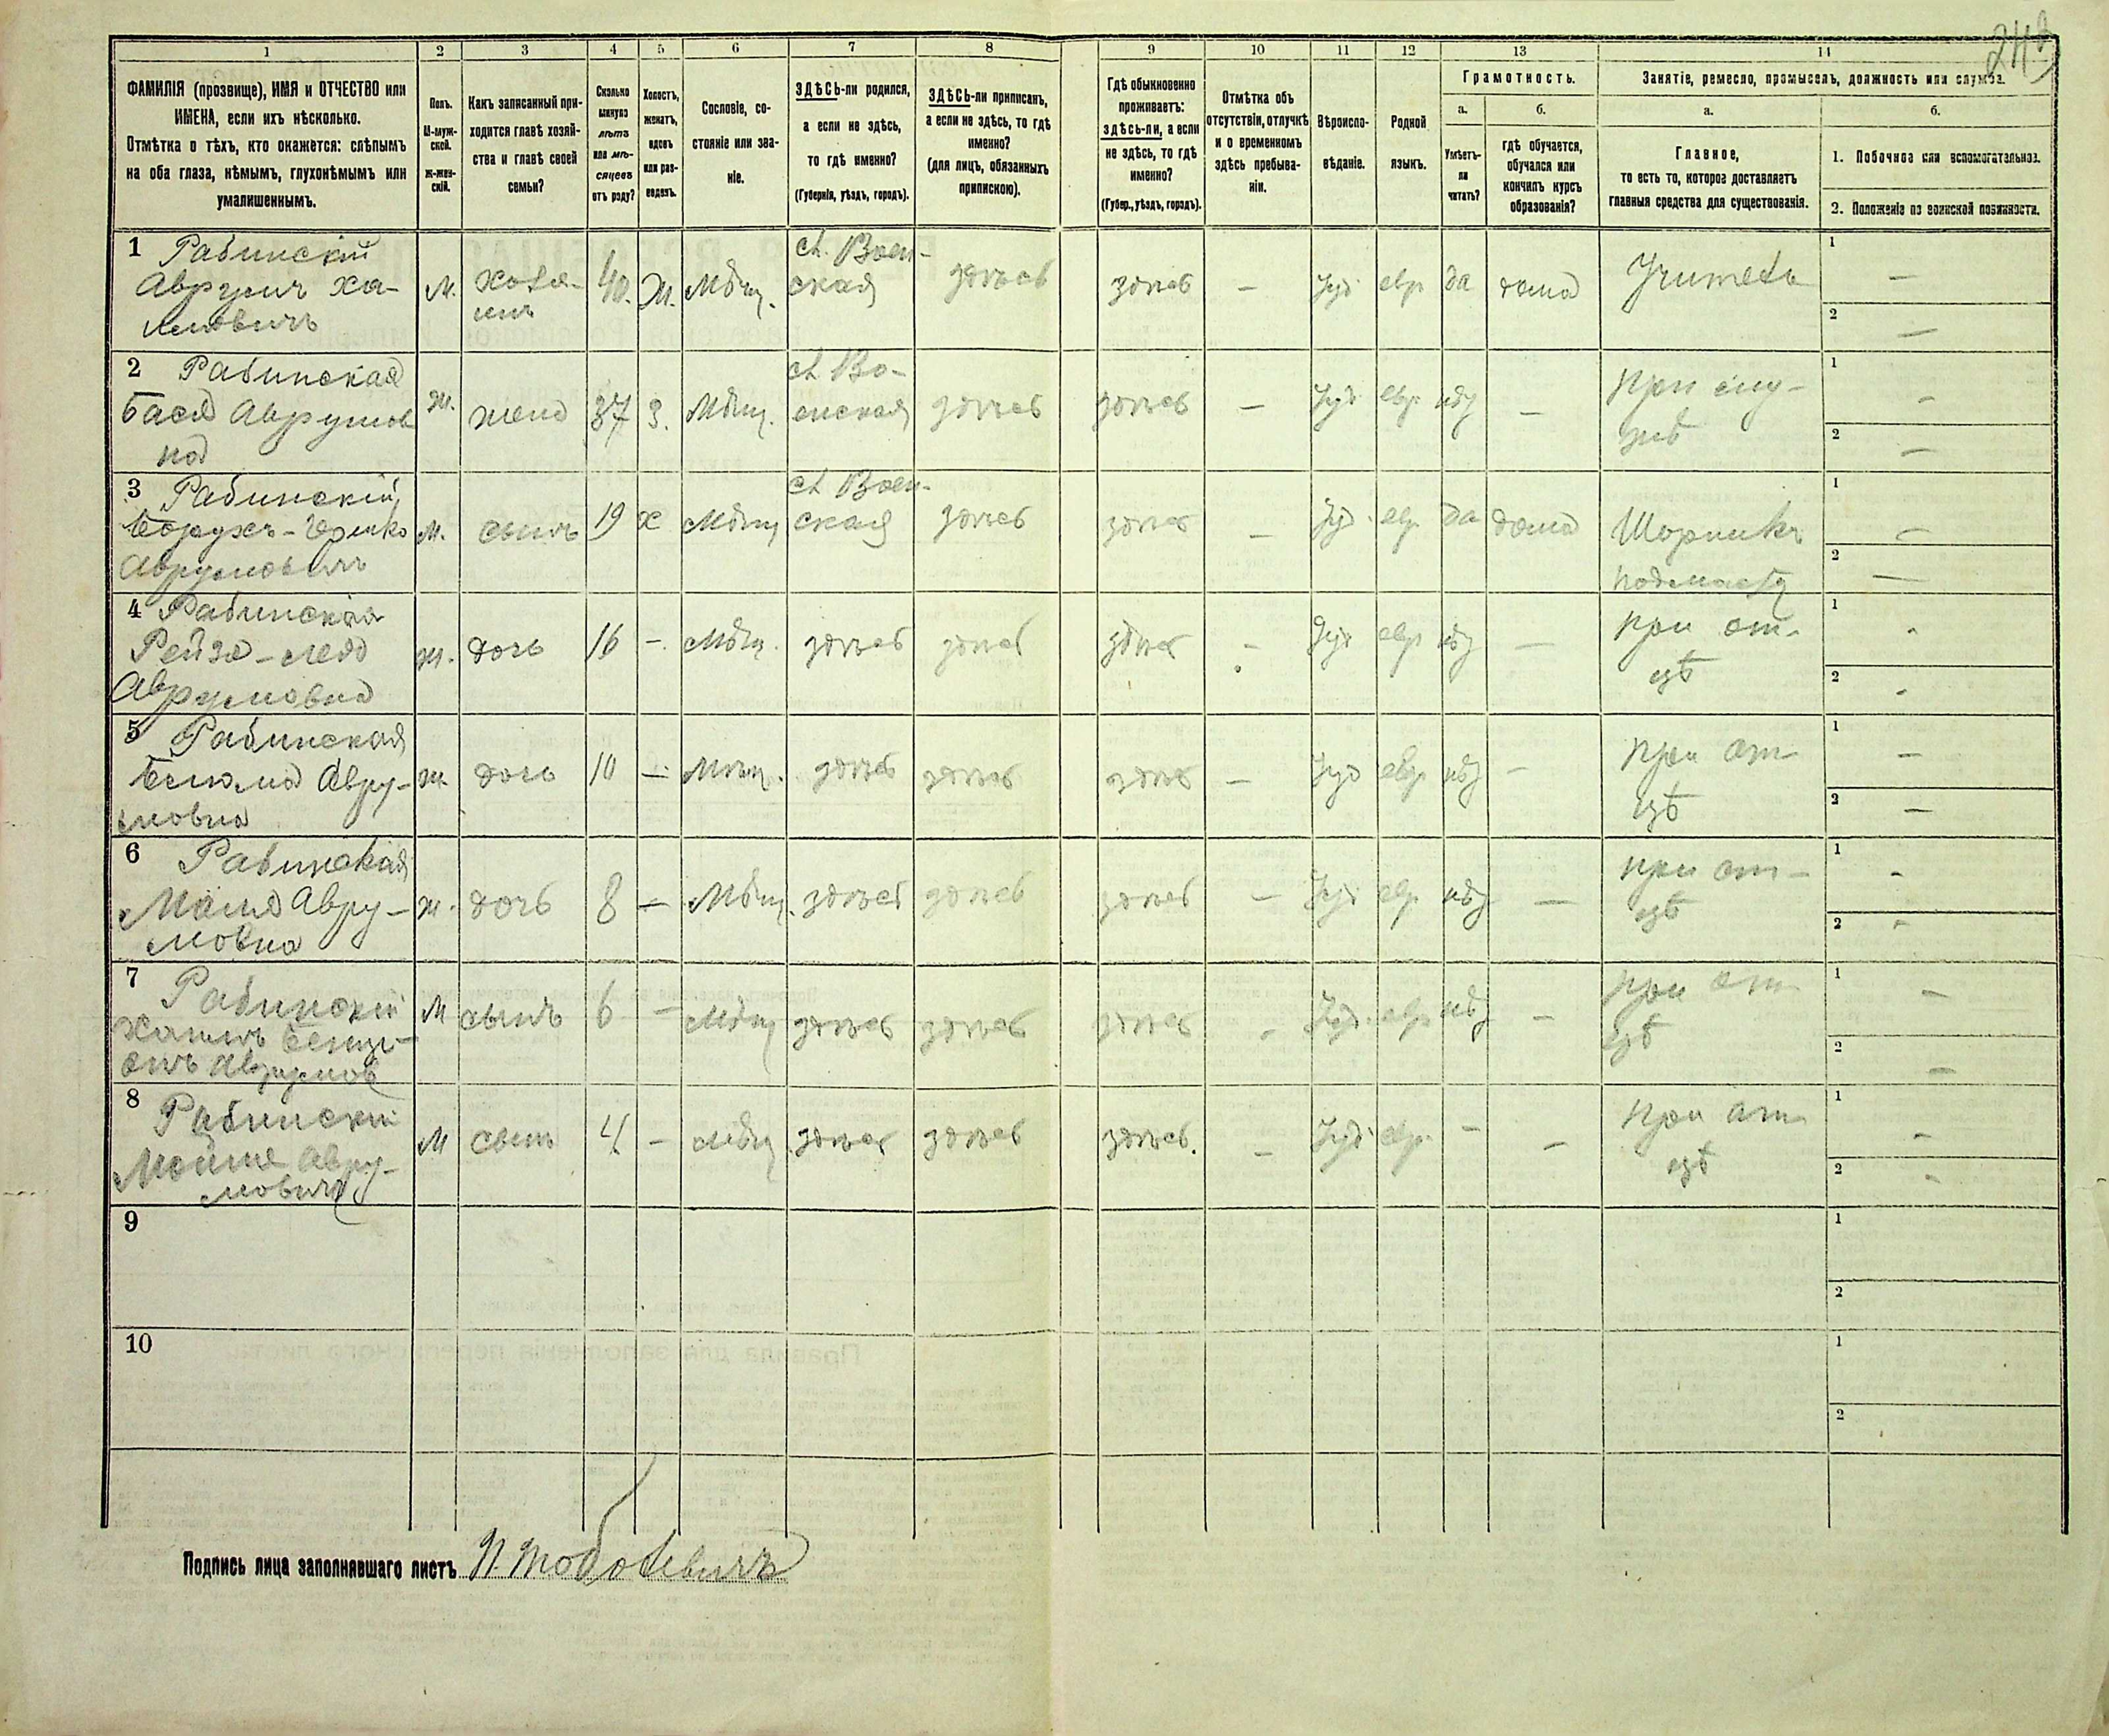 249
1 2 3 4 5 6 7 8 9 10 11 12 13 14
ФАМИЛІЯ (прозвище), ИМЯ и ОТЧЕСТВО или
ИМЕНА, если ихъ нѣсколько.
Отмѣтка о тѣхъ, кто окажется: слѣпымъ
на оба глаза, нѣмымъ, глухонѣмымъ или
умалишеннымъ.
Полъ.
М-муж-
ской.
Ж-жен-
скій.
Какъ записанный при-
ходится главѣ хозяй-
ства и главѣ своей
семьи?
Сколько
минуло
лѣтъ
или мѣ-
сяцевъ
отъ роду?
Холостъ,
женатъ,
вдовъ
или раз-
веденъ.
Сословіе, со-
стояніе или зва-
ніе.
ЗДѢСЬ-ли родился,
а если не здѣсь,
то гдѣ именно?
(Губернія, уѣздъ, городъ).
ЗДѢСЬ-ли приписанъ,
а если не здѣсь, то гдѣ
именно?
(для лицъ, обязанныхъ
припискою).
Гдѣ обыкновенно
проживаетъ:
здѣсь-ли, а если
не здѣсь, то гдѣ
именно?
(Губер., уѣздъ, городъ).
Отмѣтка объ
отсутствіи, отлучкѣ
и о временномъ
здѣсь пребыва-
ніи.
Вѣроиспо-
вѣданіе.
Родной
языкъ.
Грамотность.
а.
Умѣетъ-
ли
читать?
б.
гдѣ обучается,
обучался или
кончилъ курсъ
образованія?
Занятіе, ремесло, промыселъ, должность или служба.
а.
Главное,
то есть то, которое доставляетъ
главныя средства для существованія.
б.
1. Побочное или вспомогательное.
2. Положеніе по воинской повинности.
1 Рабинскій
Аврумъ Ха-
имовичъ
М.
хозя-
инъ
40.
Ж.
Мѣщ.
с. Воен-
ская
здѣсь
здѣсь
—
Іуд
евр
да
дома
Учитель
1 —
2 —
2 Рабинская
Бася Аврумов
на
Ж.
жена
37
З.
Мѣщ.
с. Во-
енская
здѣсь
здѣсь
—
Іуд
евр
нѣт
—
При му-
жѣ
1 -
2 —
3 Рабинскій
Борухъ-
Аврумовичъ
М.
сынъ
19
х
Мѣщ
с. Воен-
ская
здѣсь
здѣсь
—
Іуд.
евр
да
дома
Шорникъ
подмаст
1 —
2 —
4 Рабинская
Рейза-
Аврумовна
Ж.
дочь
16
-
Мѣщ.
здѣсь
здѣсь
здѣсь
-
Іуд
евр
нѣт
—
при от-
цѣ
1 -
2 -
5 Рабинская
Авру-
мовна
Ж
дочь
10
—
Мѣщ.
здѣсь
здѣсь
здѣсь
—
Іуд
евр
нѣт
—
при от-
цѣ
1 —
2 —
6 Рабинская
Маня Авру-
мовна
Ж.
дочь
8
—
Мѣщ.
здѣсь
здѣсь
здѣсь
—
Іуд
евр
нѣт
—
при от-
цѣ
1 -
2 -
7 Рабинскій
Хаимъ Бенці-
онъ Аврумов
М
сынъ
6
-
Мѣщ
здѣсь
здѣсь
здѣсь
-
Іуд.
евр
нѣт
—
при от-
цѣ
1 —
2 —
8 Рабинскій
Мойше Авру-
мовичъ
М
сынъ
4
—
Мѣщ
здѣсь
здѣсь
здѣсь.
—
Іуд
евр.
-
—
при от-
цѣ
1 —
2 -
9
1
2
10
1
2
Подпись лица заполнявшаго листъ